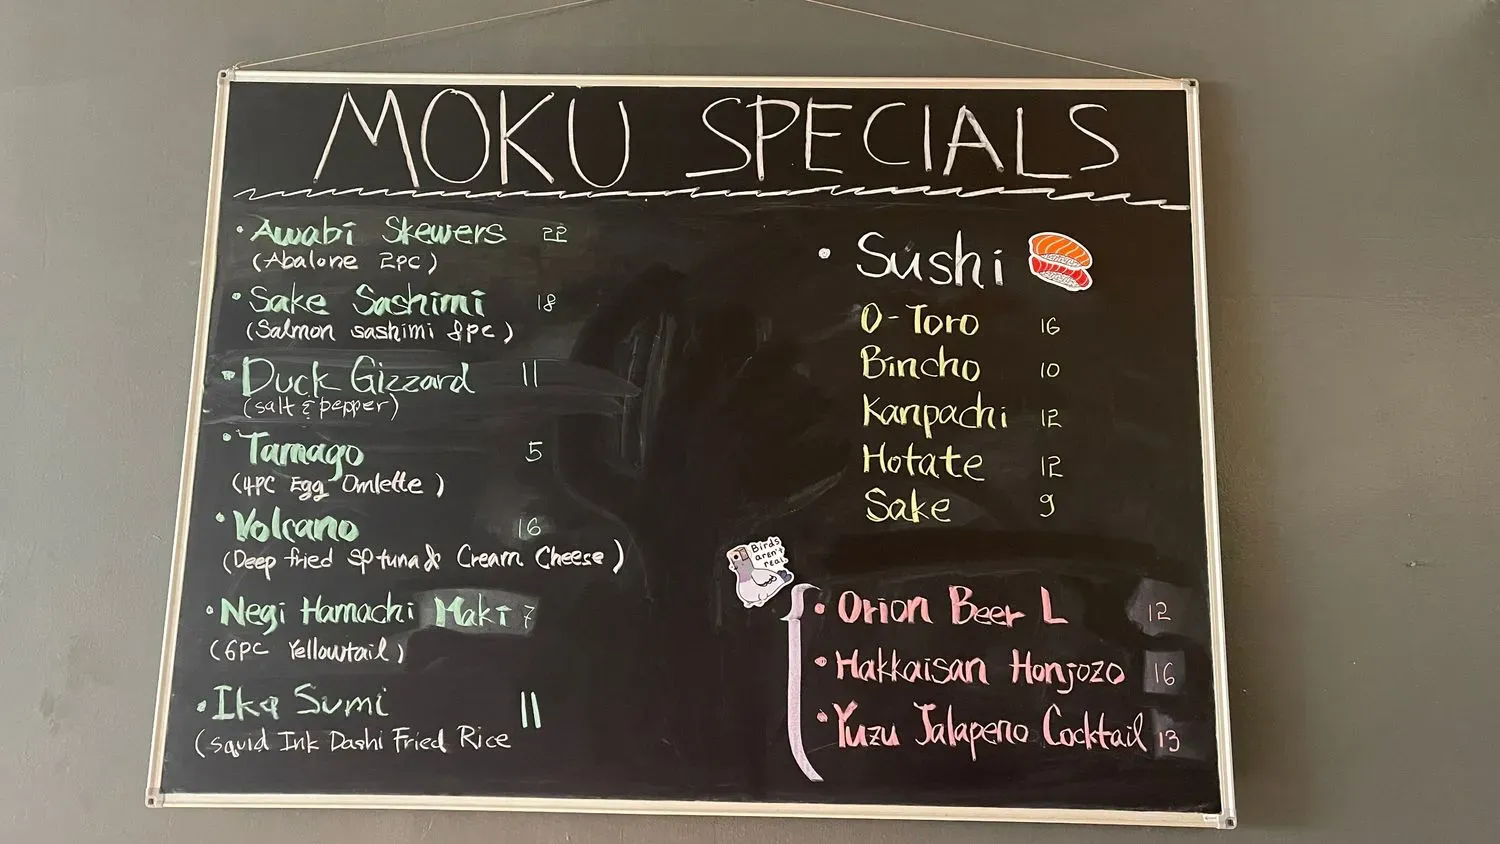 MOKU SPECIALS
• Awabi Skewers 22
(Abalone 2pc)
• Sake Sashimi 18
(Salmon sashimi 8pc)
• Duck Gizzard 11
(salt & pepper)
• Tamago 5
(4PC Egg Omlette)
• Volcano 16
(Deep fried Sp tuna & Cream Cheese)
• Negi Hamachi Maki 7
(6PC Yellowtail)
• Ika Sumi 11
(Squid Ink Dashi Fried Rice
• Sushi
O-Toro 16
Bincho 10
Kanpachi 12
Hotate 12
Sake 9
Birds
aren't
real
• Orion Beer L 12
• Hakkaisan Honjozo 16
• Yuzu Jalapeno Cocktail 13